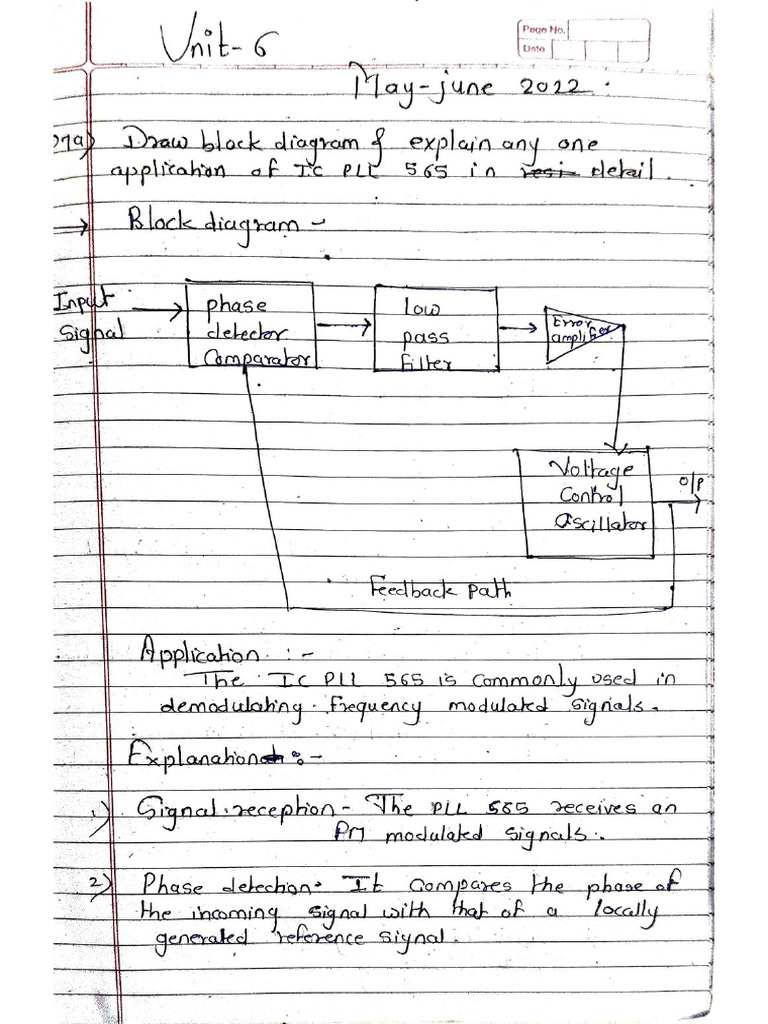 Unit-6
Page No.
Date
May-june 2022.
Q7a) Draw block diagram & explain any one
application of IC PLL 565 in detail.
Block diagram -
Input
Signal
phase
detector
Comparator
Low
pass
filter
Error
amplifier
Voltage
Control
Oscillator
O/P
Feedback path
Application :-
The IC PLL 565 is commonly used in
demodulating frequency modulated signals.
Explanation :-
1) Signal reception - The PLL 565 receives an
FM modulated signals.
2) Phase detection - It compares the phase of
the incoming signal with that of a locally
generated reference signal.